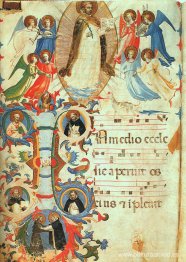 In medio eccle
sie aperuit os
eius & ipleuit